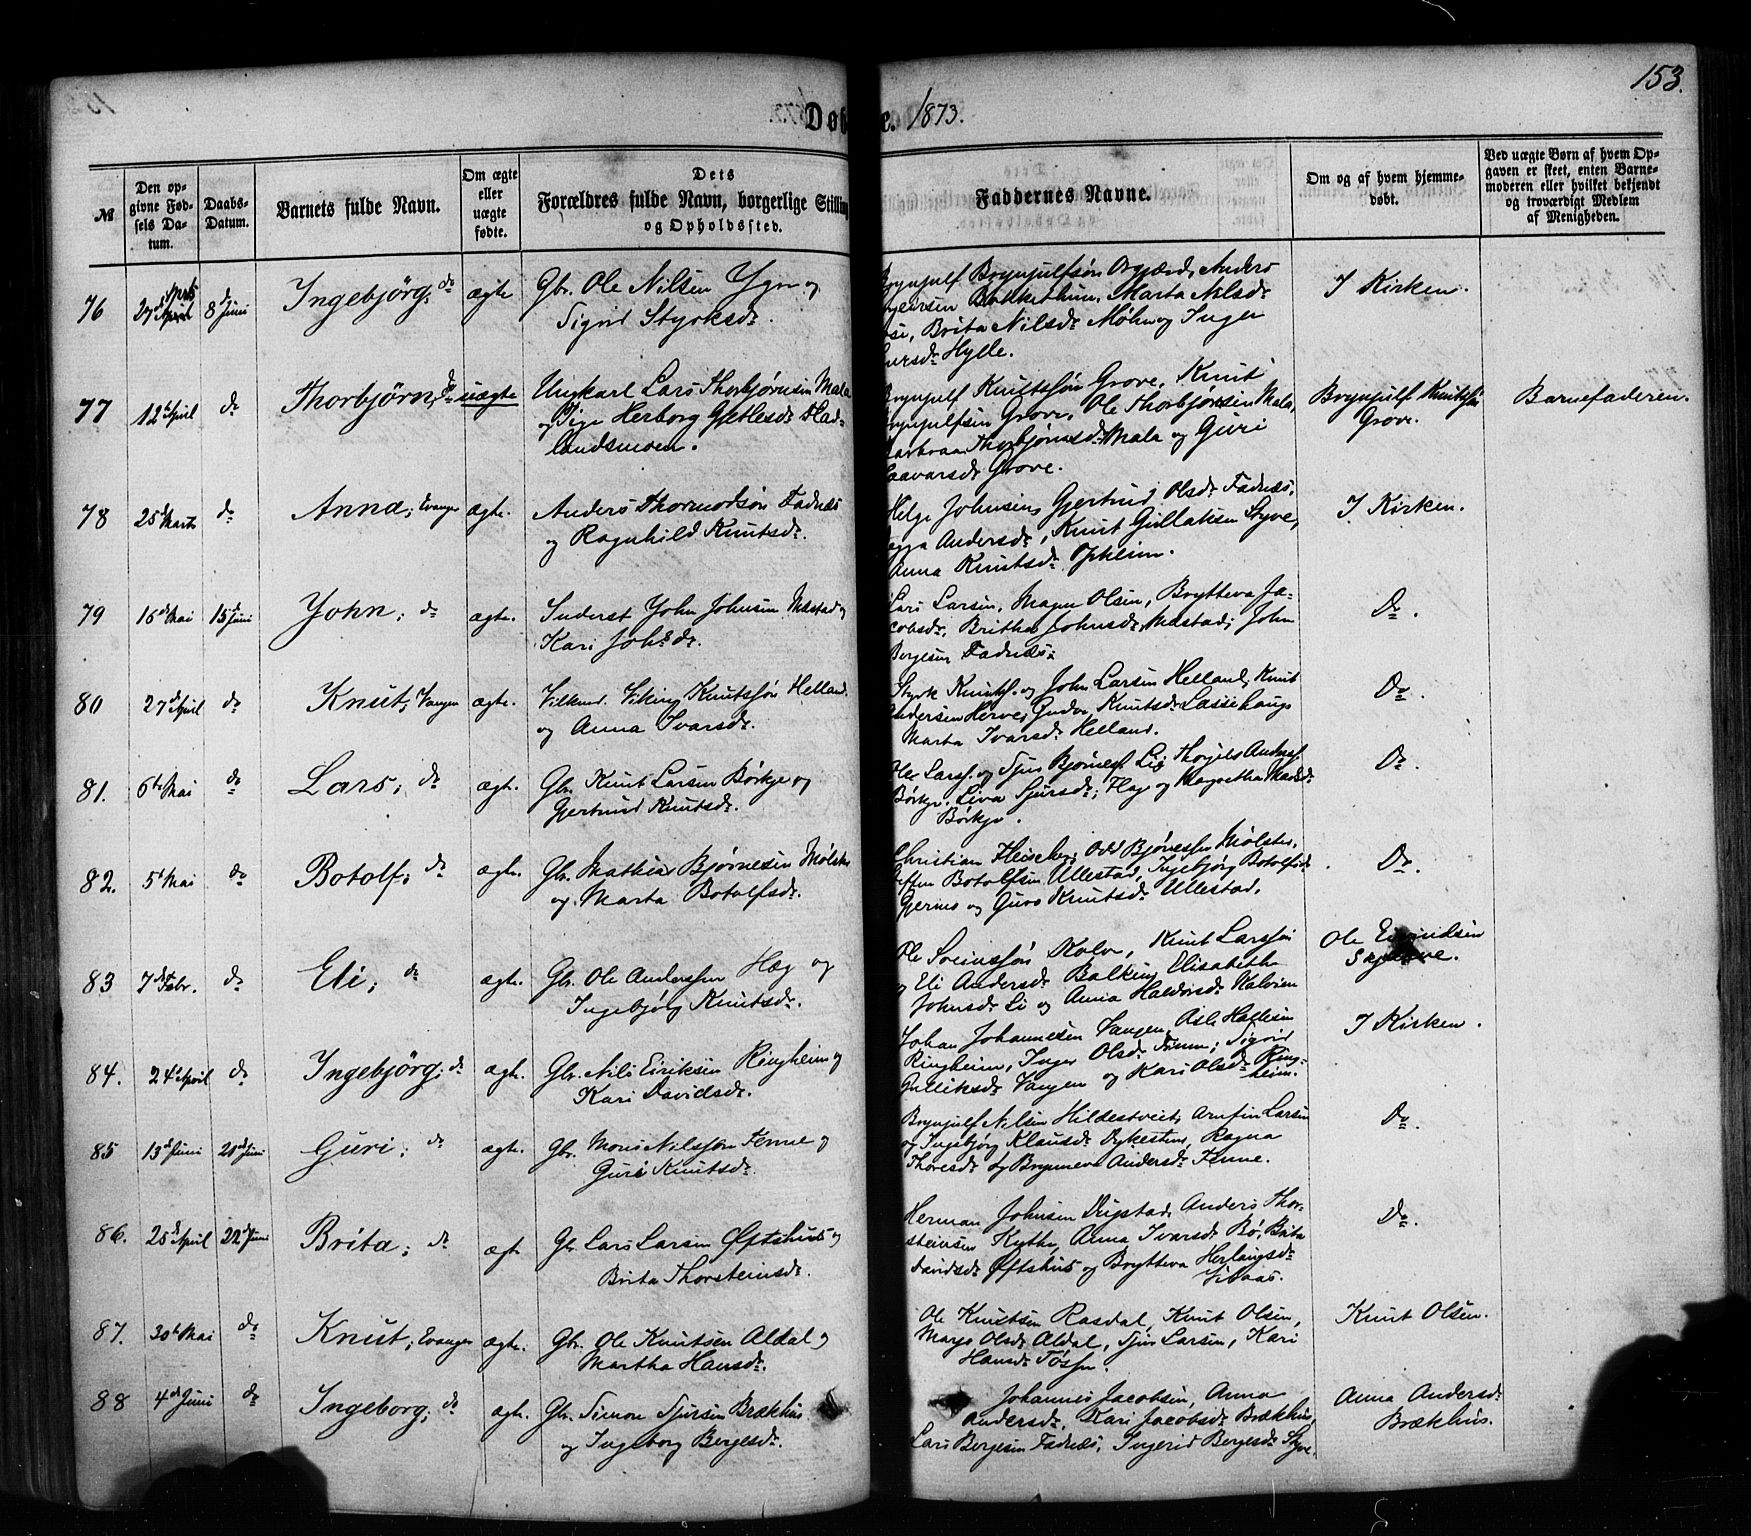 153.
Døb e. 1873.
№
Den op-
givne Fød-
sels Da-
tum.
Daabs-
Datum.
Barnets fulde Navn.
Om ægte
eller
uægte
fødte.
Dets
Forældres fulde Navn, borgerlige Stilling
og Opholdssted.
Faddernes Navne.
Om og af hvem hjemme-
døbt.
Ved uægte Børn af hvem Op-
gaven er skeet, enten Barne-
moderen eller hvilket bekjendt
og troværdigt Medlem
af Menigheden.
76 27 April 8d Juni Ingebjörg; do ægte Gbr. Ole Nilsen Ygre og
Sigrid Styrksd.
Brynjulf Brynjulfsön Anders
Marta Nilsd.
Brita Nilsd. Möhn og Inger
Larsd. Hylle.
I Kirken.
77 12 April do Thorbjörn; do uægte Ungkarl Lars Thorbjørnsen Mala
og Pige Herborg Gjetlesd. Had-
landsmoen.
Brynjulf Knutsøn Grove, Knut
Brynjulfsen Grove, Ole Thorbjørnsen Mala,
Thorbjørnsd. Mala og Guri
Grove.
Brynjulf Knutsøn
Grove.
Barnefaderen.
78 25 Marts do Anna; Evanger ægte. Anders Thormodsön Fadnæs
og Ragnhild Knutsd.
Helge Johnsen, Gjertrud Olsd. Fadnæs,
Andersd., Knut Gullaksen Styve,
Anna Knutsd. Opheim.
I Kirken.
79 16d Mai 15d Juni John; do ægte. Inderst John Johnsen Mæstad og
Kari Johsd.
Lars Larsen, Magne Olsen, Brytteva Ja-
cobsd. Britha Johnsd. Mæstad; John
Bergesen Fadnæs.
Do.
80 27d April do Knut; Vangen ægte. Viking Knutsøn Helland
og Anna Ivarsd.
Styrk Knuts. og John Larsen Helland, Knut
Andersen Herve; Knutsd. Lassehaug
Marta Ivarsd. Helland.
Do.
81. 6te Mai do Lars; do ægte. Gbr. Knut Larsen Börkje og
Gjertrud Knutsd.
Larsf. og Sjur Bjørnesf. Li; Andersf.
Börkje. Sjursd.; og Margretha
Börkje.
Do.
82. 5t Mai do Botolf; do ægte. Gbr. Mathias Bjørnesen Mølster
og Marta Botolfsd.
Christian Fleischer, Odd Bjørnesen Mølster,
Botolfsen Ullestad, Ingebjørg Botolfsd.
Gjerme og Guro Knutsd. Ullestad.
Do.
83 7d Febr. do Eli; do ægte. Gbr. Ole Anderssen Hæg og
Ingebjørg Knutsd.
Ole Sveinssøn Kolve, Knut Larssøn
og Eli Andersd. Balken, Elisabetha
Johnsd. Li og Anna Haldorsd. Kalvien
Ole Eivindsen
84. 24d April do Ingebjörg; do ægte. Gbr. Nils Eiriksen Ringheim og
Kari Davidsd.
Johan Johannesen Vangen, Hallesen
Ringheim, Inger Olsd. Finne; Sigrid
Gulleiksd. Vangen og Kari Olsd. Ring-
heim.
I Kirken.
85 13d Juni 21d Juni Guri; do ægte. Gbr. Mons Nilssøn Fenne og
Guri Knutsd.
Brynjulf Nilsen Hildestveit, Arnfin Larsen
og Ingebjørg Klausd. Dykesten, Ragna
Thoresd. og Brynneva Andersd. Fenne.
Do.
86. 25d April 22d Juni Brita; do ægte Gbr. Lars Larsen Øftshus og
Brita Thorsteinsd.
Herman Johnsen Dugstad, Anders Thor-
steinsen Kythe, Anna Ivarsd. Bø, Brita
Davidsd. Øftshus og Brytteva Herlaugsd.
Do.
87. 30t Mai do Knut; Evanger ægte. Gbr. Ole Knutsen Aldal og
Martha Hansd.
Ole Knutsen Rasdal, Knut Olsen,
Olsd. Aldal, Sjur Larsen, Kari
Hansd.
Knut Olsen.
88 4d Juni do Ingeborg; do ægte. Gbr. Simon Sjursen Brækhus
og Ingeborg Bergesd.
Johannes Jacobsen, Anna
Andersd. Kari Jacobsd. Brækhus,
Lars Bergesen Fadnæs, Ingerid Bergesd. Styve.
Anna Andersd.
Brækhus.